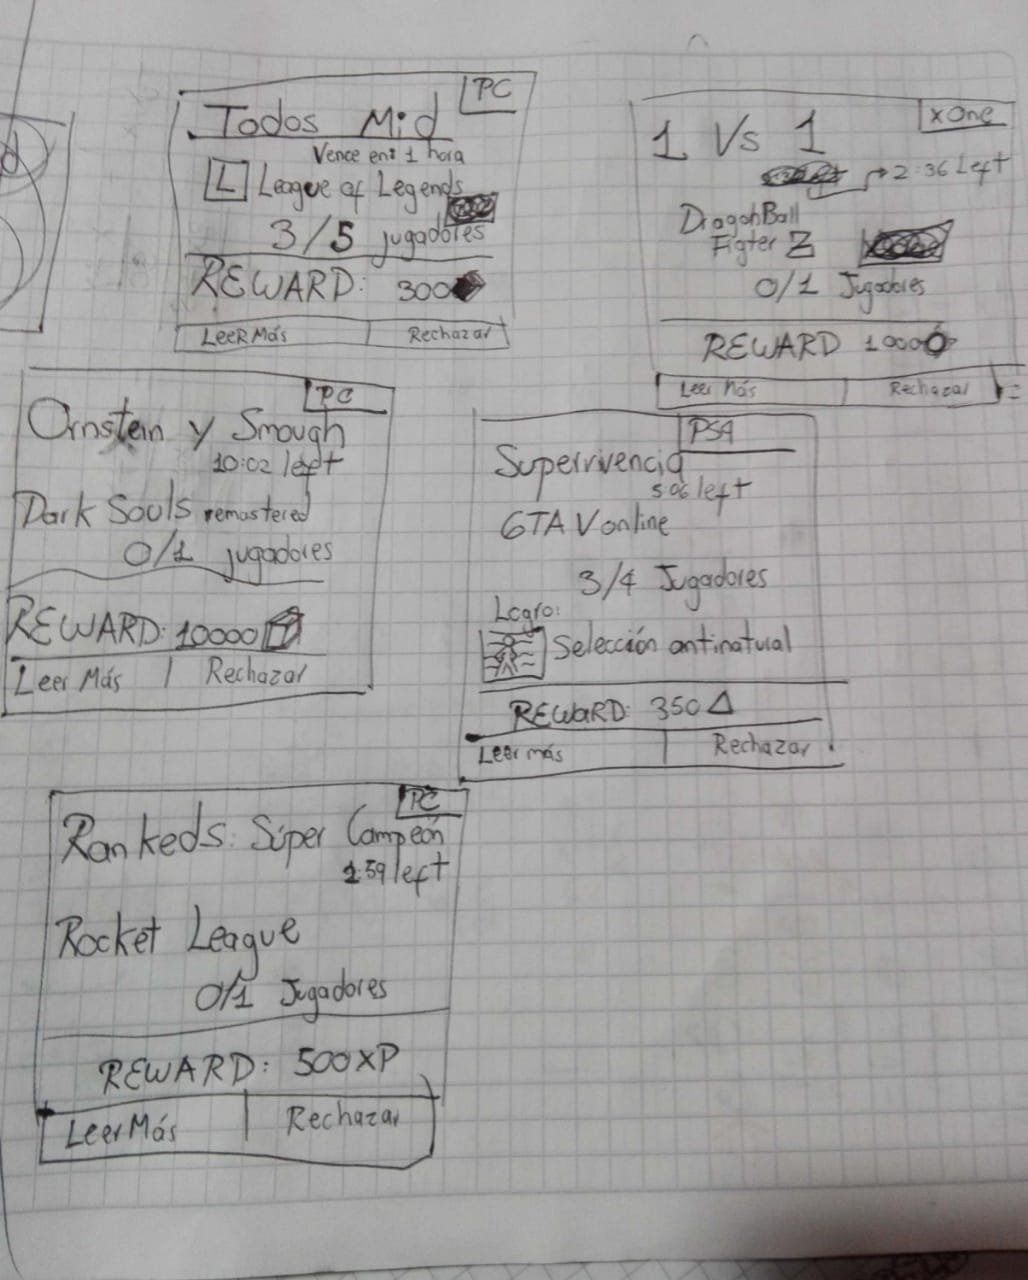 PC
Todos Mid
Vence en: 1 hora
L League of Legends
3/5 jugadores
REWARD: 300
Leer Más Rechazar
xOne
1 Vs 1
2:36 Left
DragonBall
Figter Z
0/1 Jugadores
REWARD 1000
Leer Más Rechazar
PC
Ornstein y Smough
10:02 left
Dark Souls remastered
0/1 jugadores
REWARD: 10000
Leer Más Rechazar
PS4
Supervivencia
5:06 left
GTA V online
3/4 Jugadores
Logro:
Selección antinatural
REWARD: 350
Leer más Rechazar
PC
Rankeds: Súper Campeón
1:59 left
Rocket League
0/1 Jugadores
REWARD: 500XP
Leer Más Rechazar